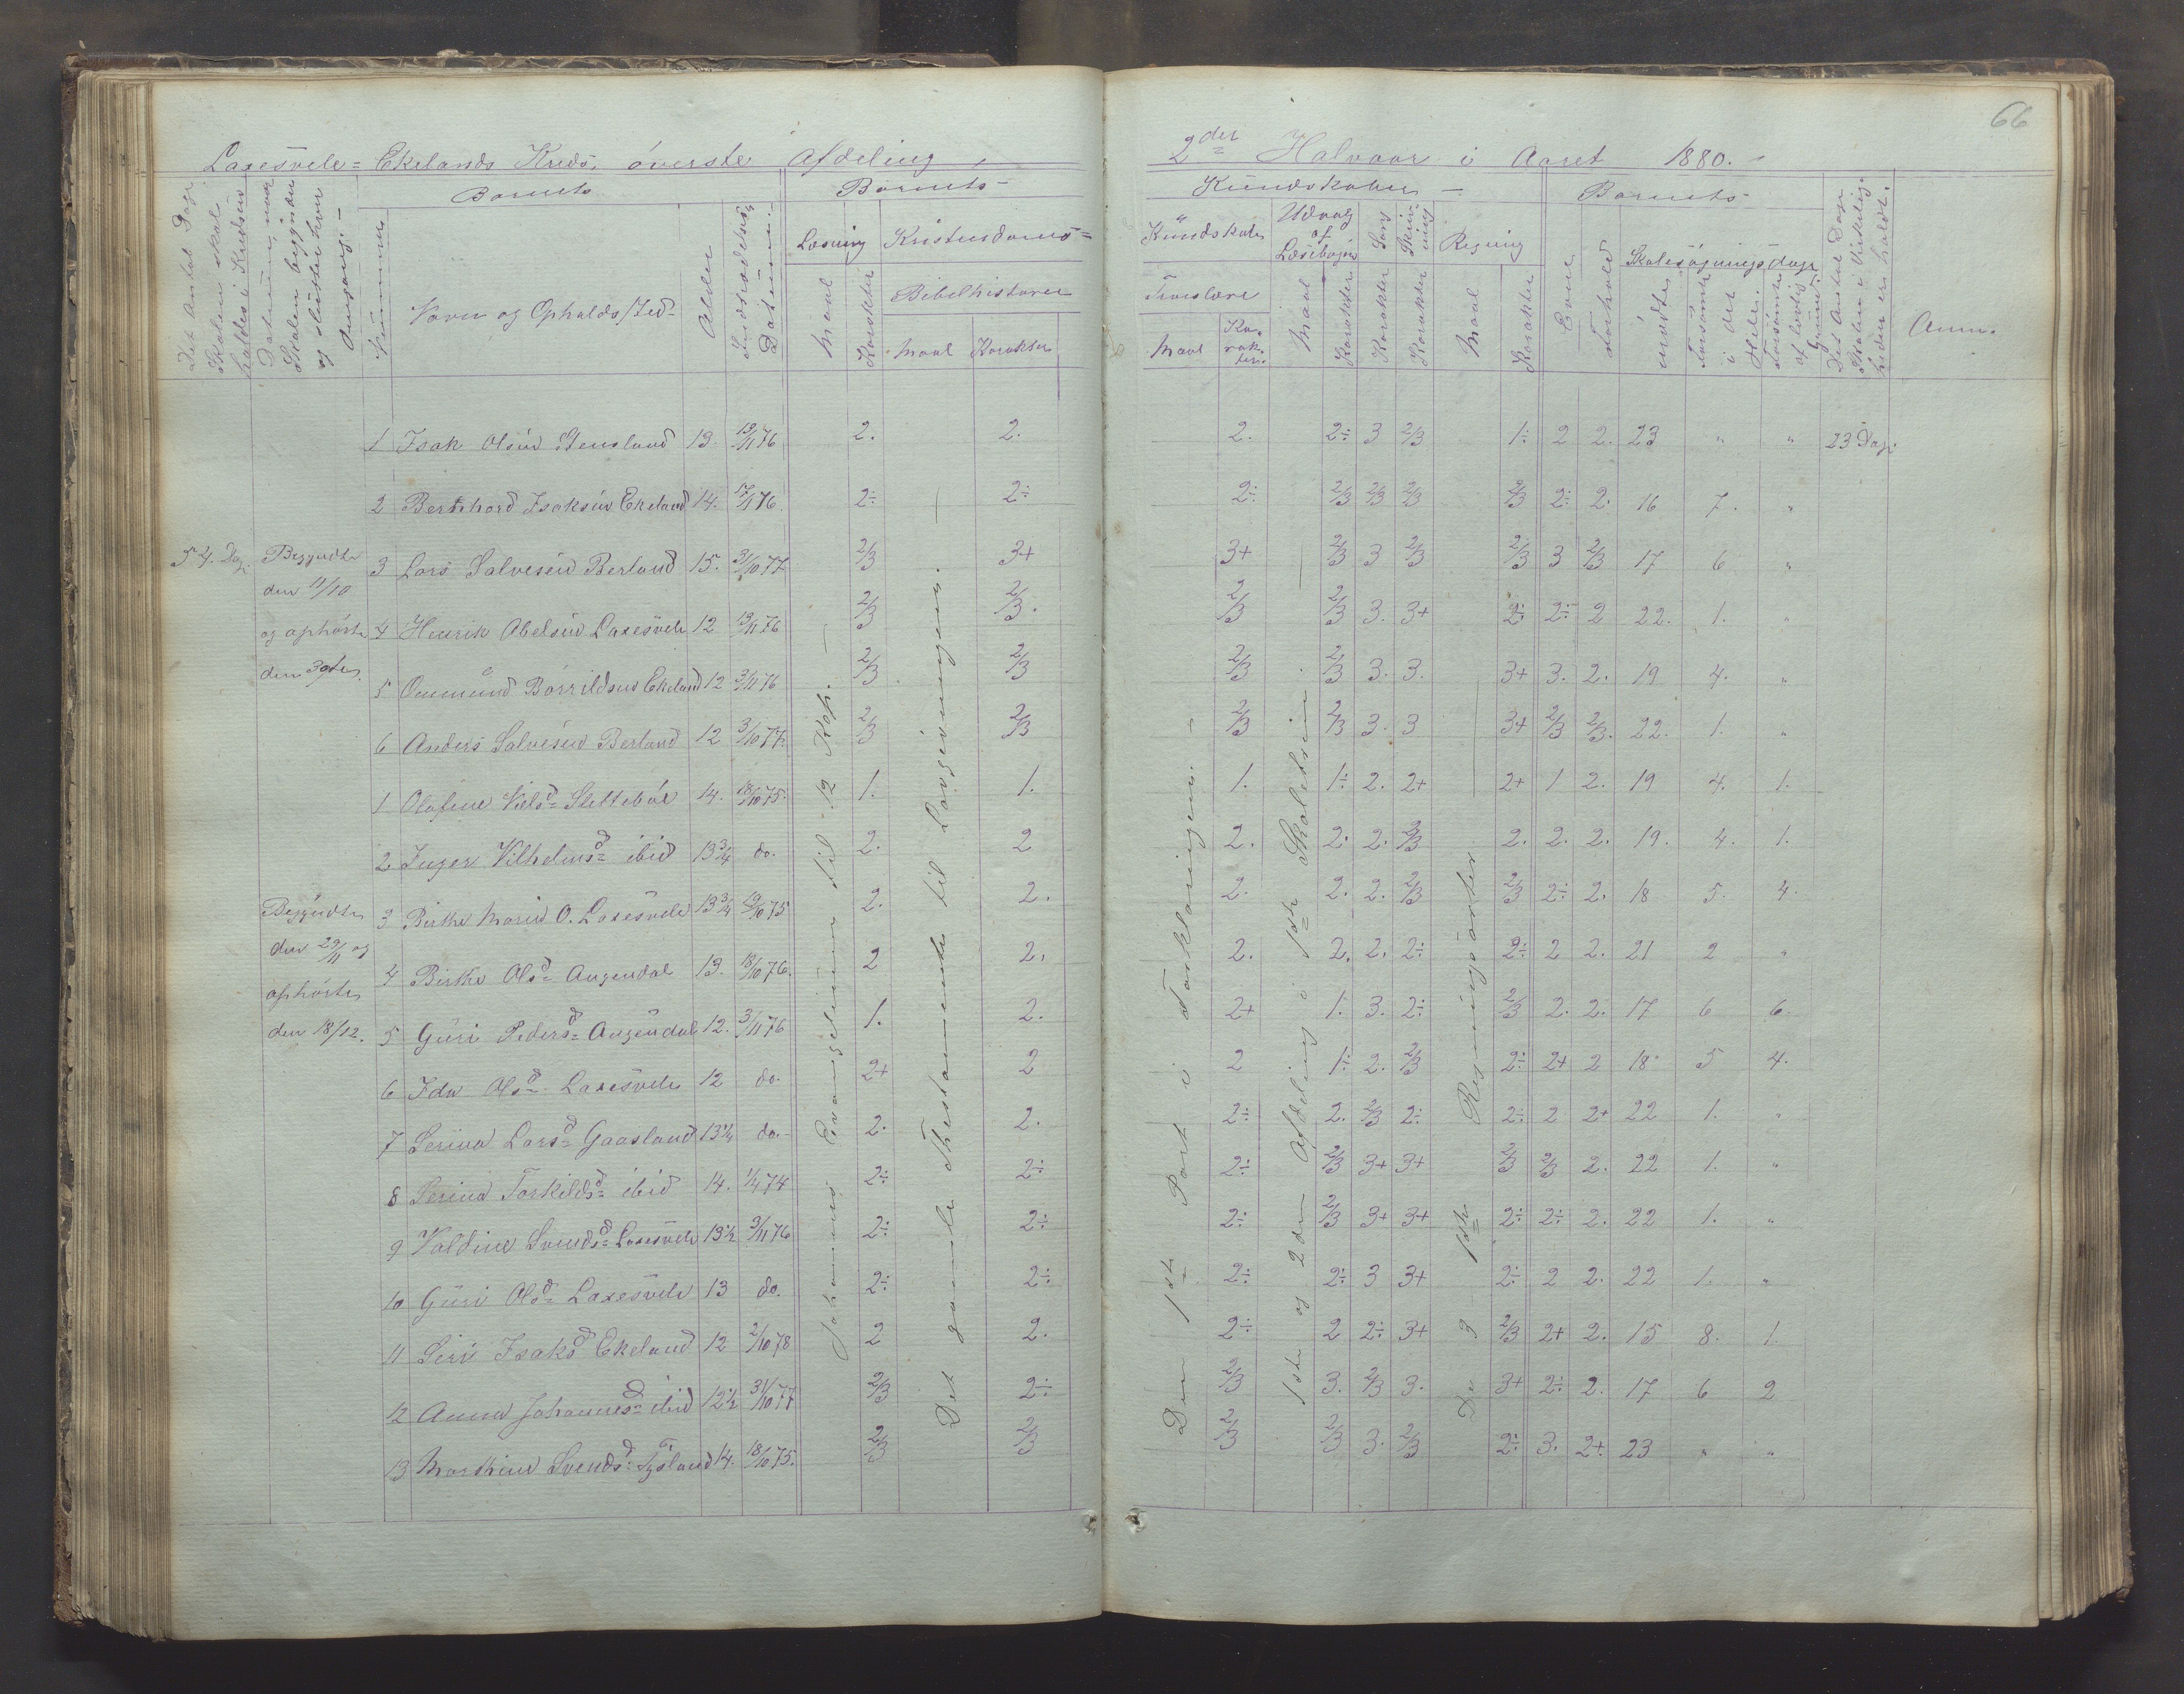 66
Laxesvele= Ekelands Kreds, överste Afdeling
2det Halvaar i Aaret 1880.
Det Antal Dage Skolen skal holdes i Kredsen
Datum, naar Skolen begynder og slutter hver Omgang.
Barnets
Nummer
Navn og Opholds/ted
Alder
Indtrædelses Datum.
Barnets
Læsning
Maal
Karakter
Kristendoms=
Bibelhistorie
Maal
Karakter
Kundskaber
Kundskab
Troeslære
Maal
Karakter.
Udvalg af Læsebogen
Maal
Karakter
Sang
Karakter
Skrivning
Karakter
Regning
Maal
Karakter
Barnets
Evne
Forhold
Skolesøgningsdage
mødte
forsømte i det Hele.
forsømte af lovlig Grund.
Det Antal Dage Skolen i Virkeligheden er holdt.
Anm.
1 Isak Olsen Stensland 13. 19/11 76 2. 2. 2. 2÷ 3 2/3 1÷ 2 2. 23 " " 23 Dage
2 Bernhard Isaksen Ekeland 14. 17/11 76. 2÷ 2÷ 2÷ 2/3 2/3 2/3 2/3 2÷ 2. 16 7. "
54. Dage. Begyndte den 11/10 og ophörte den 30te.
3 Lars Salvesen Berland 15. 3/10 77 2/3 3+ 3+ 2/3 3 2/3 2/3 3 2/3 17 6 "
4 Henrik Abelsen Laxesvele 12 19/11 76 2/3 2/3. 2/3 2/3 3. 3+ 2÷ 2÷ 2 22. 1. "
5 Ommund Börrildsen Ekeland 12 3/11 76 2/3 2/3 2/3 2/3 3. 3. 3+ 3. 2. 19 4. "
6 Anders Salvesen Berland 12 3/10 77. 2/3 2/3 2/3 2/3 3. 3 3+ 2/3 2/3. 22. 1. "
1 Olafine Nielsd= Sletteböe 14. 18/10 75. 1. 1. 1. 1÷ 2. 2+ 2+ 1 2. 19 4. 1.
2 Inger Vilhelmsd= ibid 13 3/4 do. 2. 2 2. 2. 2. 2/3 2. 2. 2. 19. 4. 1.
Begyndte den 29/11 og ophörte den 18/12.
3 Birthe Marie O. Laxesvele 13 3/4 19/10 75 2. 2. 2. 2. 2. 2/3 2/3 2÷ 2. 18 5. 4.
4 Birthe Olsd= Augendal 13. 18/10 76. 2 2. 2. 2. 2. 2÷ 2÷ 2 2. 21 2 "
5 Guri Pedersd= Augendal 12. 3/11 76 1. 2. 2+ 1. 3. 2÷ 2/3 2. 2. 17 6 6.
6 Ida Olsd= Laxesvele 12 do. 2+ 2 2 1÷ 2. 2/3 2÷ 2+ 2 18. 5 4.
7 Serina Larsd= Gaasland 13 1/2 do. 2. 2. 2÷ 2. 2/3 2÷ 2÷ 2 2+ 22 1. "
8 Serina Torkildsd= ibid 14. 1/4 74 2÷ 2÷ 2÷ 2/3 3+ 3+ 2/3 2/3 2. 22 1. "
9 Valdine Svendsd= Laxesvele 13 1/2 3/11 76 2÷ 2÷ 2÷ 2/3 3+ 3+ 2÷ 2÷ 2. 22 1. "
10 Guri Olsd= Laxesvele 13 do. 2÷ 2÷ 2÷ 2÷ 3 3+ 2÷ 2 2. 22 1. "
11 Seri Isaksd Ekeland 12 2/10 78 2 2. 2÷ 2 2÷ 3+ 2/3 2+ 2. 15 8. 1.
12 Anna Johannesd= ibid 12 1/2 31/10 77 2/3 2÷ 2/3 3. 2/3 3. 3+ 2÷ 2. 17 6 2
13 Marthine Svendsd= Tysland 14. 18/10 75. 2/3 2/3 2/3 2/3 3. 2/3 2÷ 3. 2+ 23 " "
Johannes Evangelium til 12 Kap.
Det gamle Thestamente til Lovgivningen.
Den 1ste Part i Forklaringen.
1ste og 2den Afdeling i 1ste Skoletrin
De 3 1ste Regningsarter